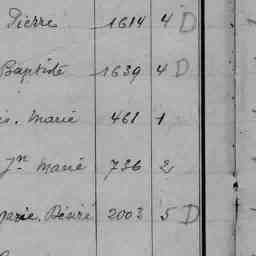 Pierre 1614 4 D
Baptiste 1639 4 D
Marie 461 1
Jn Marie 736 2
Marie. Désiré 2002 5 D